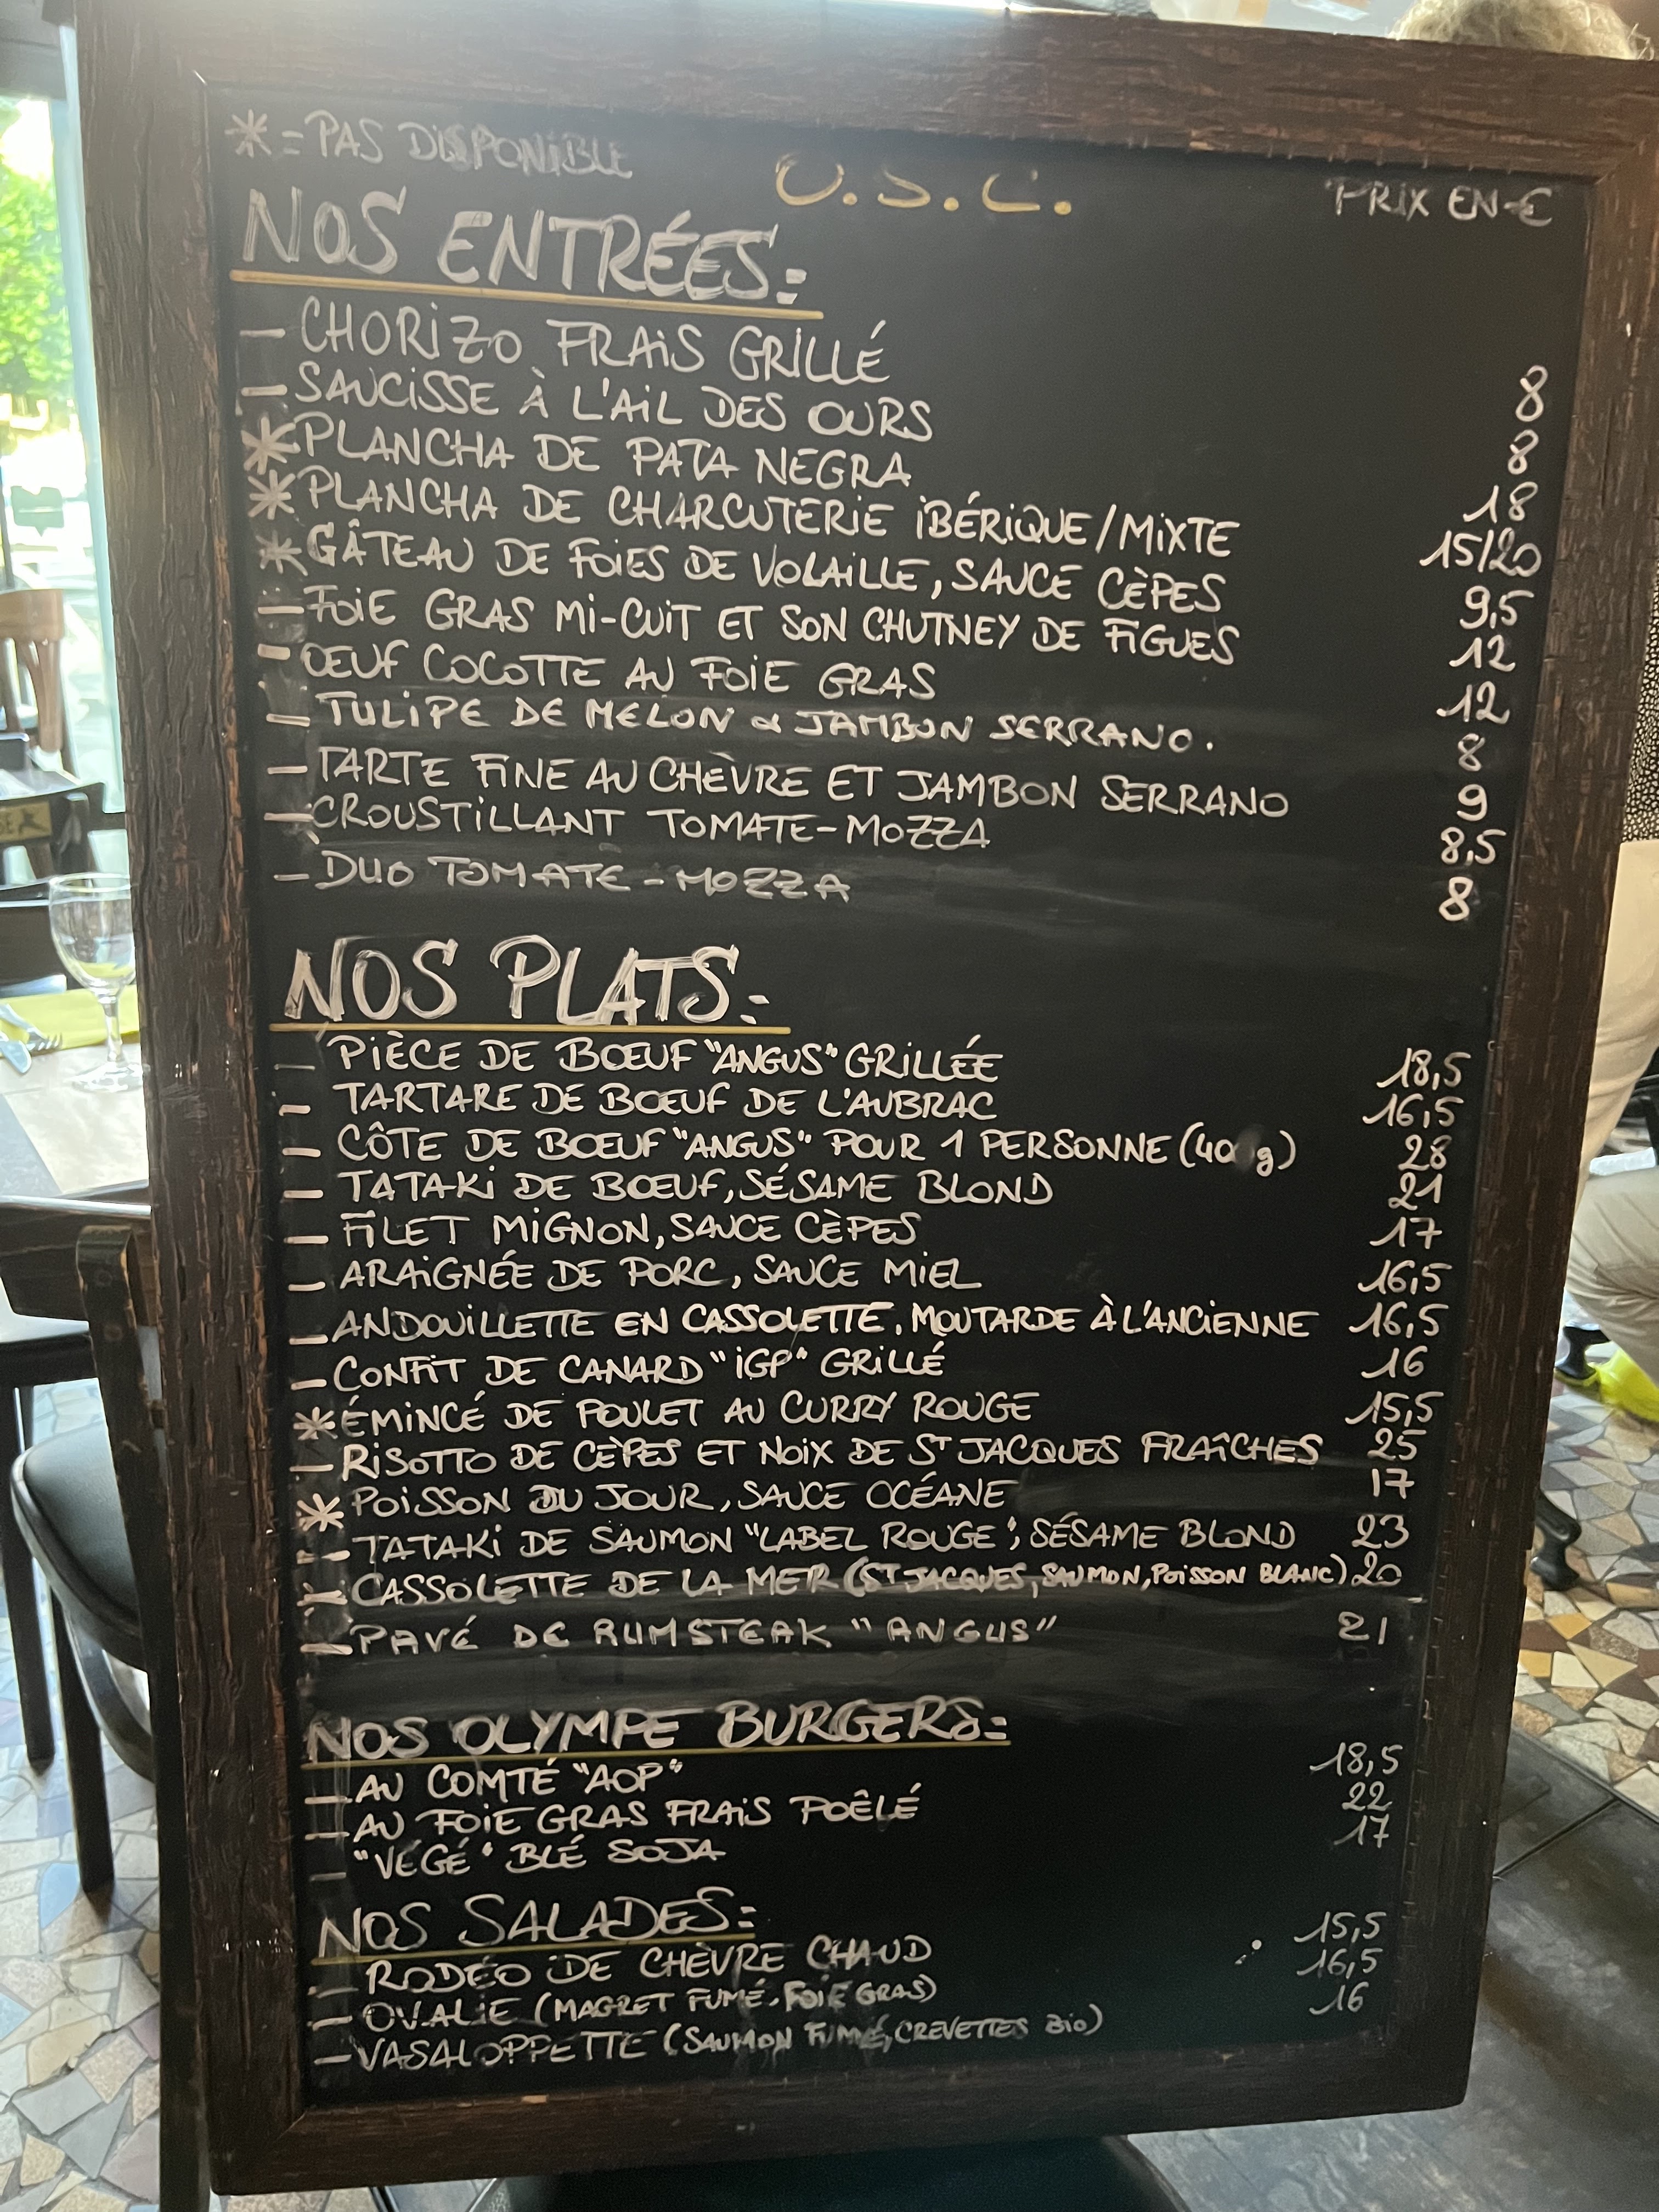 *=PAS DISPONIBLE
PRIX EN €
NOS ENTRÉES:
- CHORIZO FRAIS GRILLÉ 8
- SAUCISSE À L'AIL DES OURS 8
* PLANCHA DE PATA NEGRA 18
* PLANCHA DE CHARCUTERIE IBÉRIQUE/MIXTE 15/20
* GÂTEAU DE FOIES DE VOLAILLE, SAUCE CÈPES 9,5
- FOIE GRAS MI-CUIT ET SON CHUTNEY DE FIGUES 12
- ŒUF COCOTTE AU FOIE GRAS 12
- TULIPE DE MELON & JAMBON SERRANO. 8
- TARTE FINE AU CHÈVRE ET JAMBON SERRANO 9
- CROUSTILLANT TOMATE-MOZZA 8,5
- DUO TOMATE-MOZZA 8
NOS PLATS:
- PIÈCE DE BŒUF "ANGUS" GRILLÉE 18,5
- TARTARE DE BŒUF DE L'AUBRAC 16,5
- CÔTE DE BŒUF "ANGUS" POUR 1 PERSONNE (400g) 28
- TATAKI DE BŒUF, SÉSAME BLOND 21
- FILET MIGNON, SAUCE CÈPES 17
- ARAIGNÉE DE PORC, SAUCE MIEL 16,5
- ANDOUILLETTE EN CASSOLETTE, MOUTARDE À L'ANCIENNE 16,5
- CONFIT DE CANARD "IGP" GRILLÉ 16
* ÉMINCÉ DE POULET AU CURRY ROUGE 15,5
- RISOTTO DE CÈPES ET NOIX DE ST JACQUES FRAÎCHES 25
* POISSON DU JOUR, SAUCE OCÉANE 17
- TATAKI DE SAUMON "LABEL ROUGE", SÉSAME BLOND 23
- CASSOLETTE DE LA MER (ST JACQUES, SAUMON, POISSON BLANC) 20
- PAVÉ DE RUMSTEAK "ANGUS" 21
NOS OLYMPE BURGERS:
- AU COMTÉ "AOP" 18,5
- AU FOIE GRAS FRAIS POÊLÉ 22
- "VÉGÉ" BLÉ SOJA 17
NOS SALADES:
- RODÉO DE CHÈVRE CHAUD 15,5
- OVALIE (MAGRET FUMÉ, FOIE GRAS) 16,5
- VASALOPPETTE (SAUMON FUMÉ, CREVETTES BIO) 16